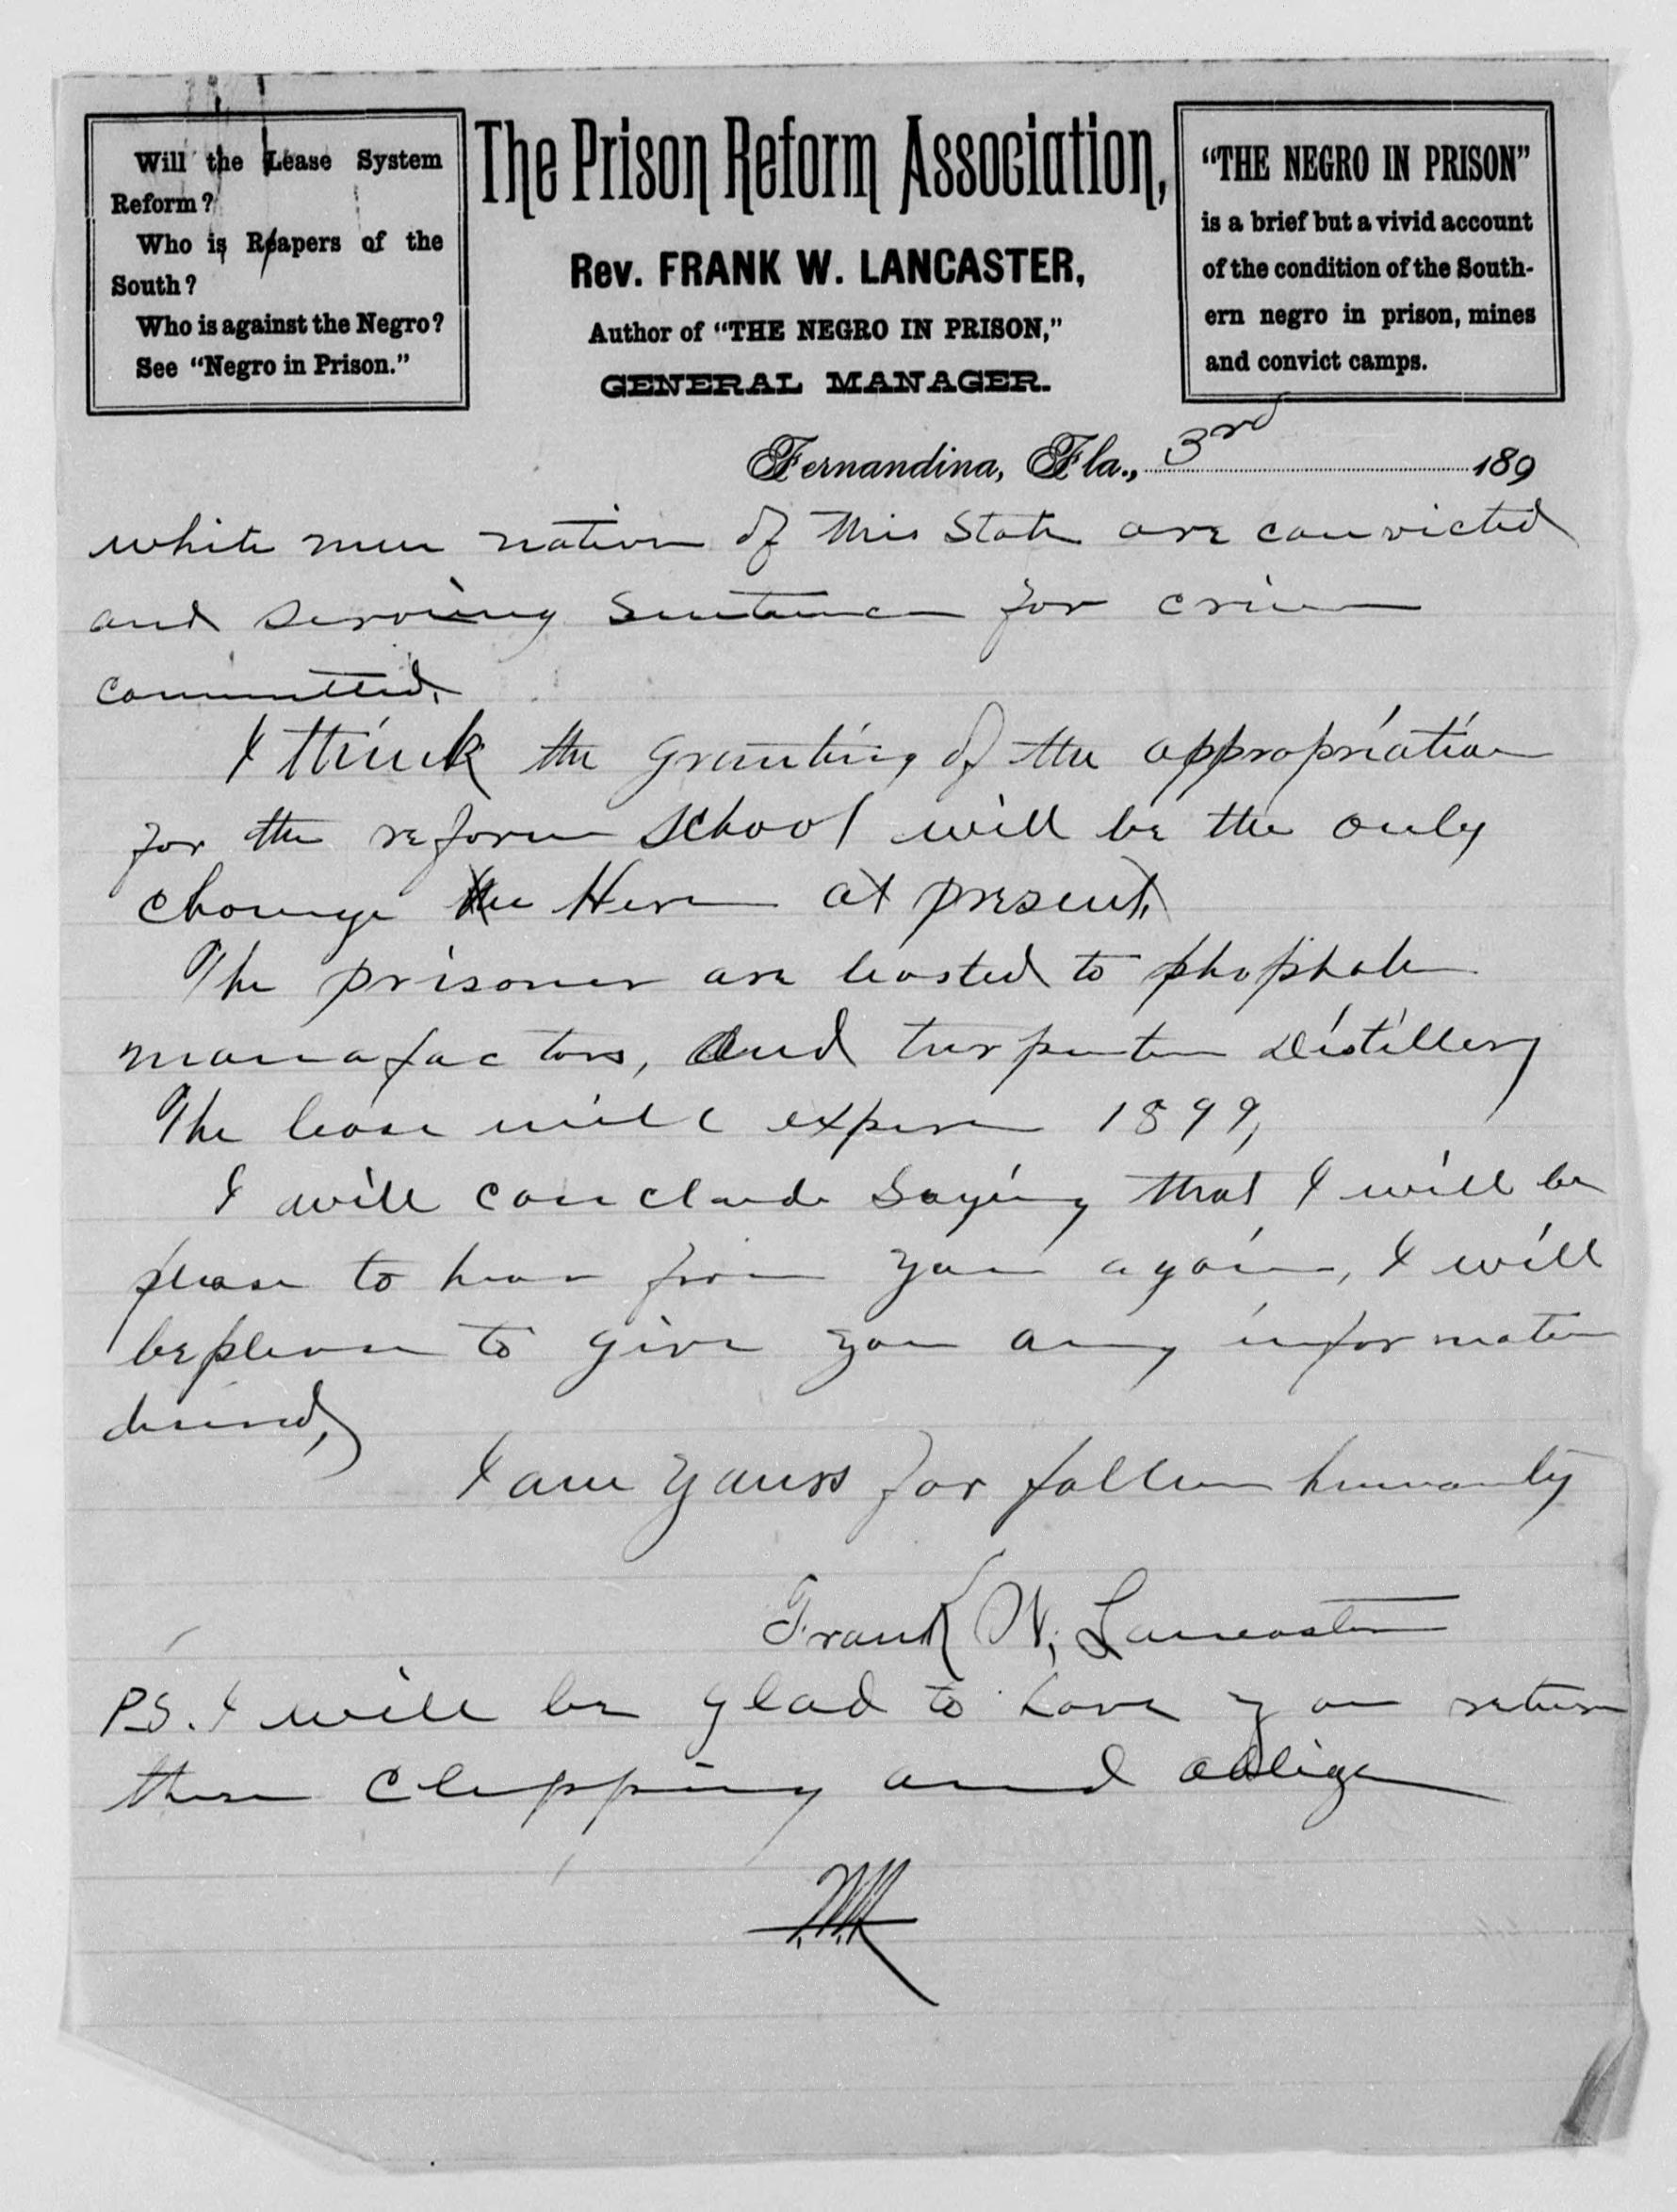 Will the Lease System
Reform?
Who is Reapers of the
South?
Who is against the Negro?
See "Negro in Prison."
The Prison Reform Association,
Rev. FRANK W. LANCASTER,
Author of "THE NEGRO IN PRISON,"
GENERAL MANAGER.
"THE NEGRO IN PRISON"
is a brief but a vivid account
of the condition of the South-
ern negro in prison, mines
and convict camps.
Fernandina, Fla., 3rd 189
white men native of this State are convicted
and serving Sentence for crime
committed.
I think the granting of the appropriation
for the reform School will be the only
change Here at present.
The prisoner are leasted to phosphate
manafactors, And turpentine Distillery
The lease will expire 1899,
I will conclude Saying that I will be
please to hear from you again, I will
be please to give you any information
desired,
I am yours for fallen humanity
Frank W. Lancaster
P.S. I will be glad to have you return
these Clipping and oblige